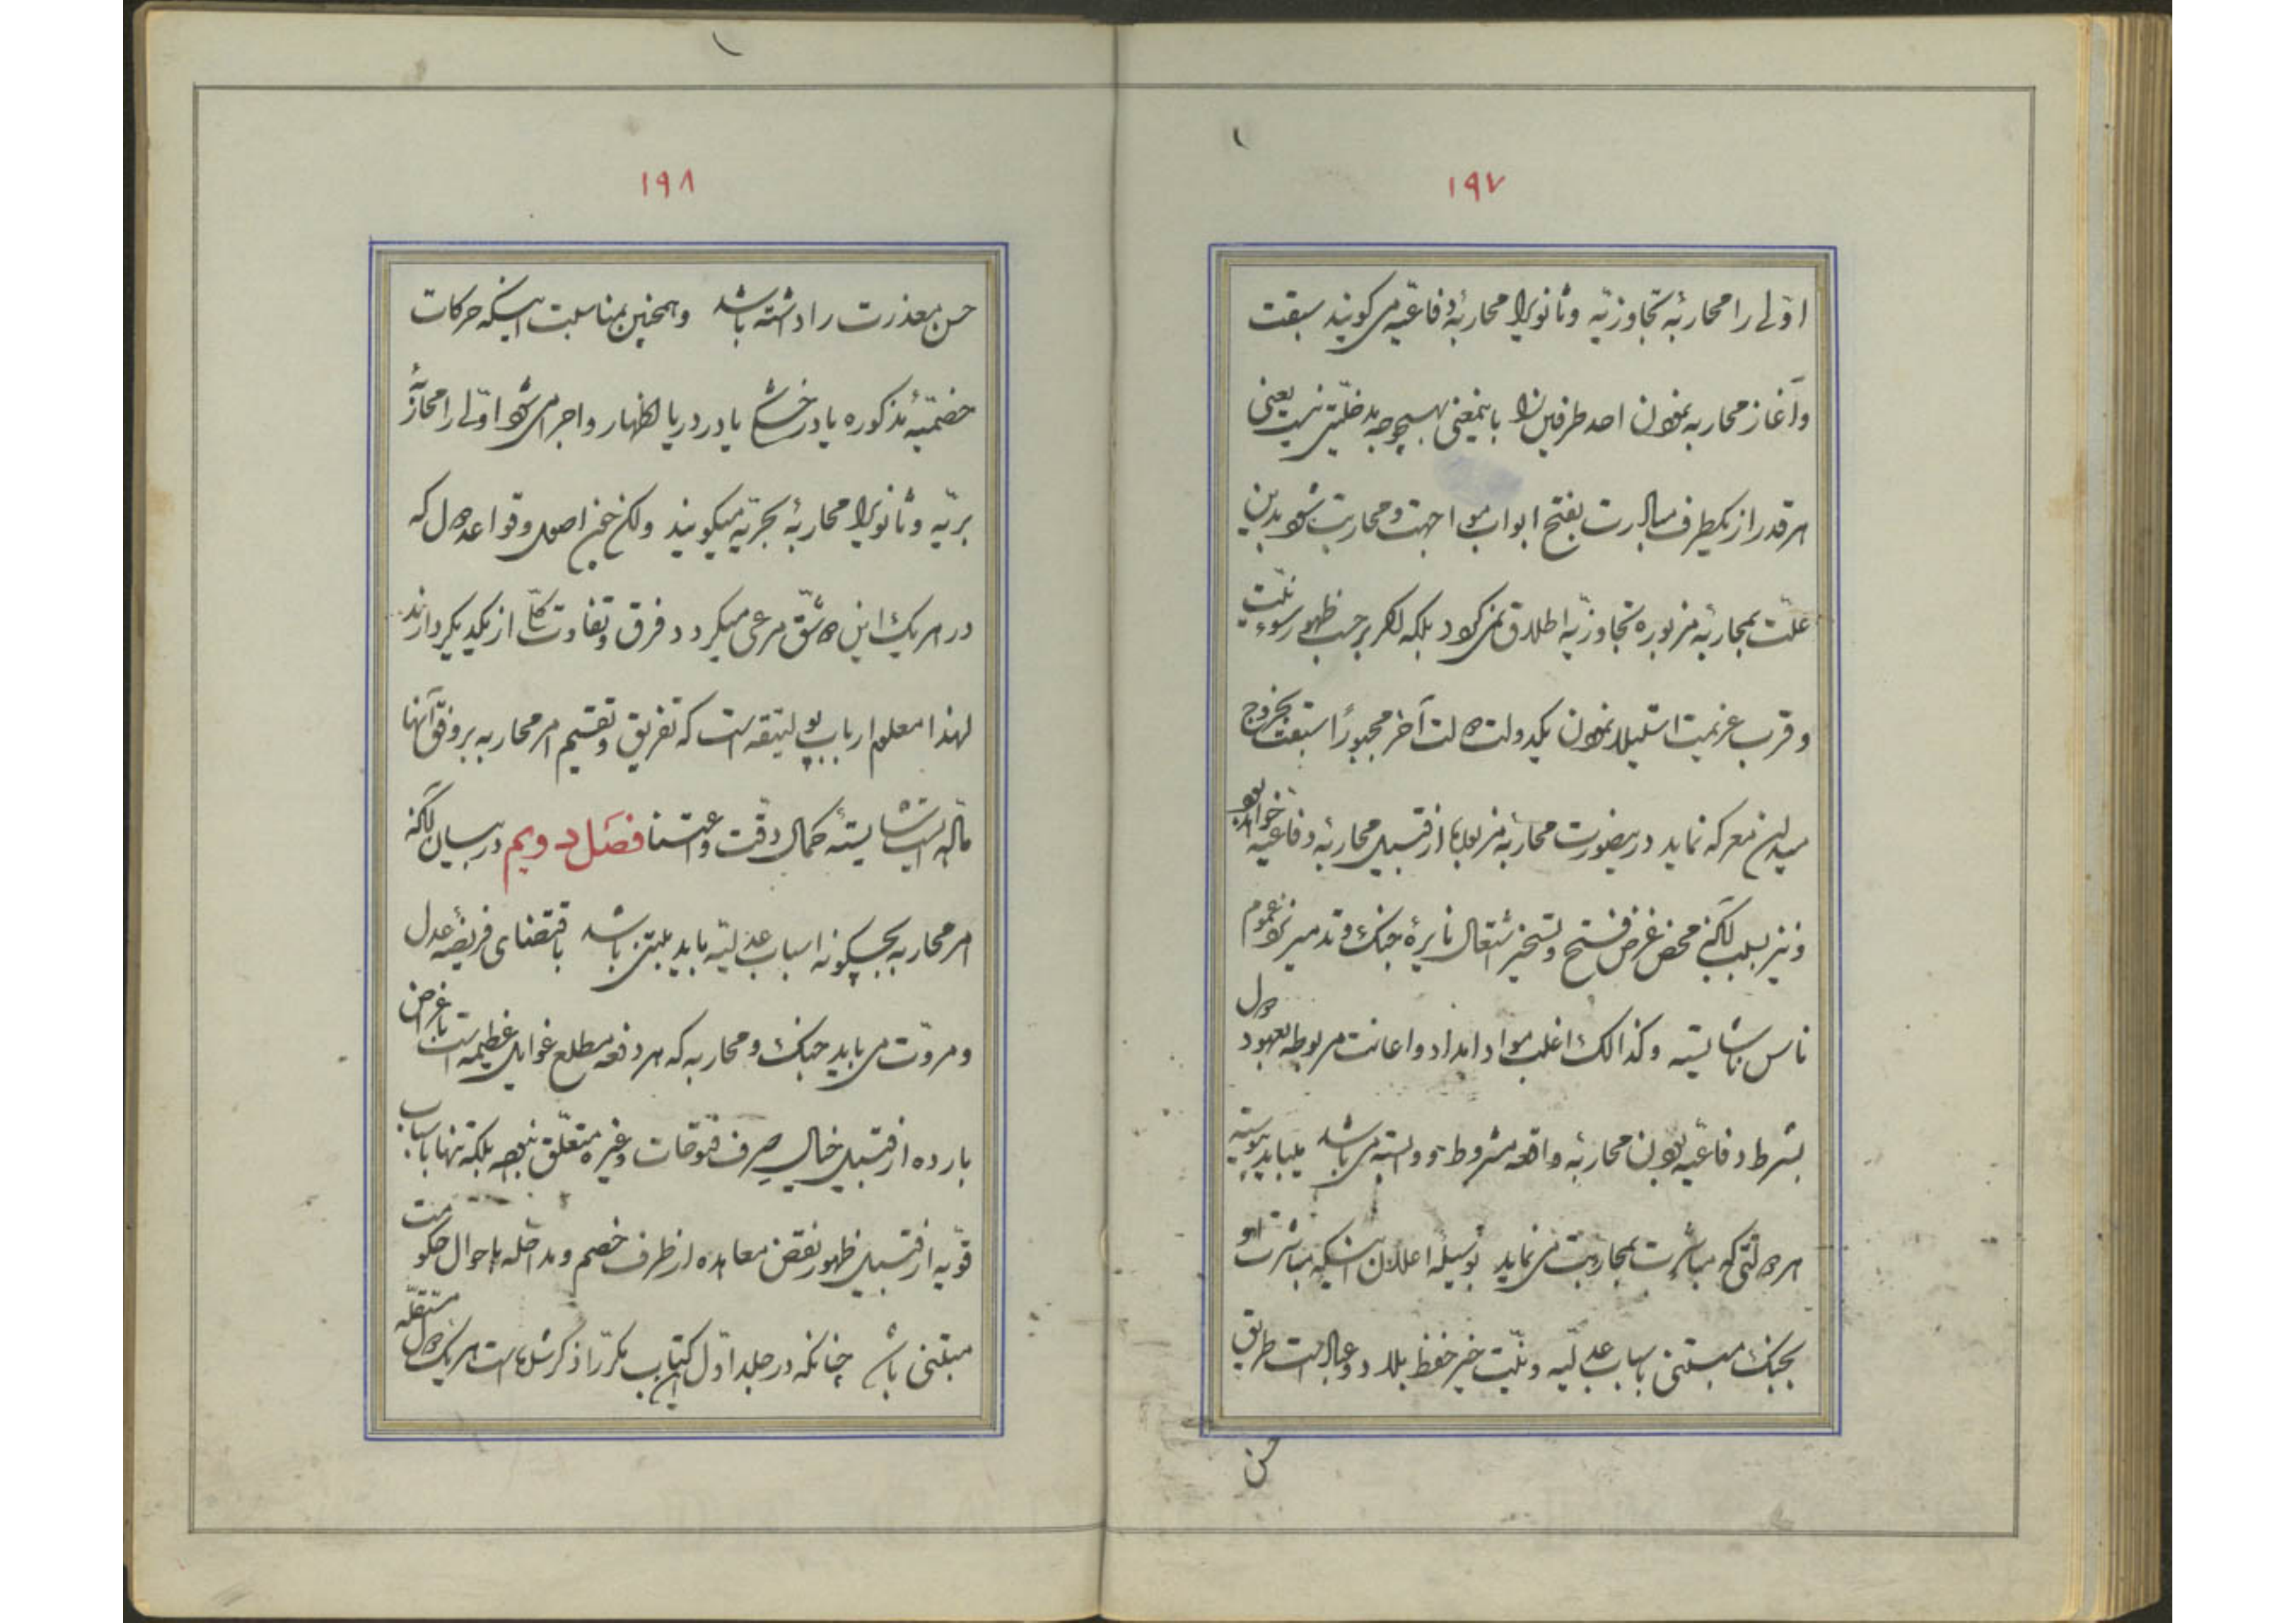 ۱۹۷
اوّلی را محاربهٔ تجاوزیّه و ثانوی را محاربهٔ دفاعیّه می کویند سبقت
و آغاز محاربه نمودن احد طرفین را باینمعنی بهیچوجه مدخلیّتی نیست یعنی
هر قدر از یکطرف مبادرت بفتح ابواب مواجهت و محاربت شود بدین
علّت بمحاربهٔ مزبوره تجاوزیّه اطلاق نمی کردد بلکه اکر برحسب ظهور سوء نیّت
و قرب عزیمت استیلا نمودن یکدولت دولت آخر مجبوراً سبقت بخروج
میدان معرکه نماید در اینصورت محاربهٔ مزبوره از قبیل محاربهٔ دفاعیّه خواهد بود
و نیز بسبب آنکه محض غرض فتح و تسخیر اشتعال نایرهٔ جنک و تدمیر نزد عموم
ناس ناشایسته و کذالک اغلب مواد امداد و اعانت مربوطه بعهود دول
بشرط دفاعیّه بودن محاربهٔ واقعه مشروط و وابسته می باشد بناید پیوسته
هر دولتی که مباشرت بمحاربت می نماید بوسیلهٔ اعلان اینکه مباشرت او
بجنک مبتنی باسباب عدلیّه و نیّت خیر حفظ بلاد و عباد است طریق
حسن
۱۹۸
حسن معذرت را داشته باشد و همچنین بمناسبت اینکه حرکات
خصمیّهٔ مذکوره یا در خشکی یا در دریا اظهار و اجرا می شود اوّلی را محاربهٔ
برّیّه و ثانوی را محاربهٔ بحریّه میکویند ولکن چنین اصول و قواعد دول که
در هر یک این دو شقّ مرعی میکردد فرق و تفاوت کلّی از یکدیکر دارند
لهذا معلوم ارباب پولیتیقه است که تفریق و تقسیم امر محاربه بر وفق آنها
مادّه ایست شایستهٔ کمال دقّت و اعتنا فصل دویم در بیان آنکه
امر محاربه بچکونه اسباب عدلیّه باید مبتنی باشد باقتضای فریضهٔ عدل
و مروّت می باید جنک و محاربه که هر دفعه مطلع غوایل عظیمه است باغراض
بارده از قبیل خیال صرف فتوحات و غیره متعلّق نبوده بلکه تنها باسباب
قویّه از قبیل ظهور نقض معاهده از طرف خصم و مداخله باحوال حکومت
مبتنی باشد چنانکه در جلد اوّل این کتاب مکرّراً ذکر شده است هر یک دول مستقلّه